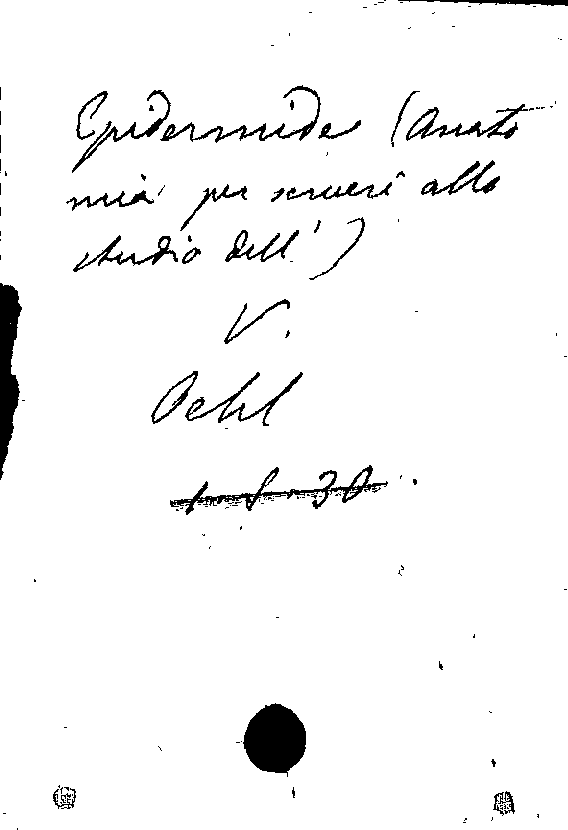 Epidermide (Anato
mia per servire allo
studio dell')
V.
Oehl
1-8-30